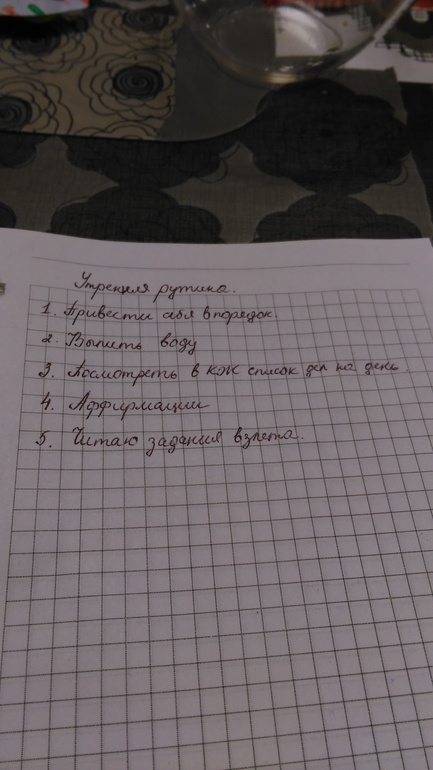 Утренняя рутина.
1. Привести себя в порядок.
2. Выпить воду
3. Посмотреть в КЖ список дел на день
4. Аффирмации
5. Читаю задания взлета.